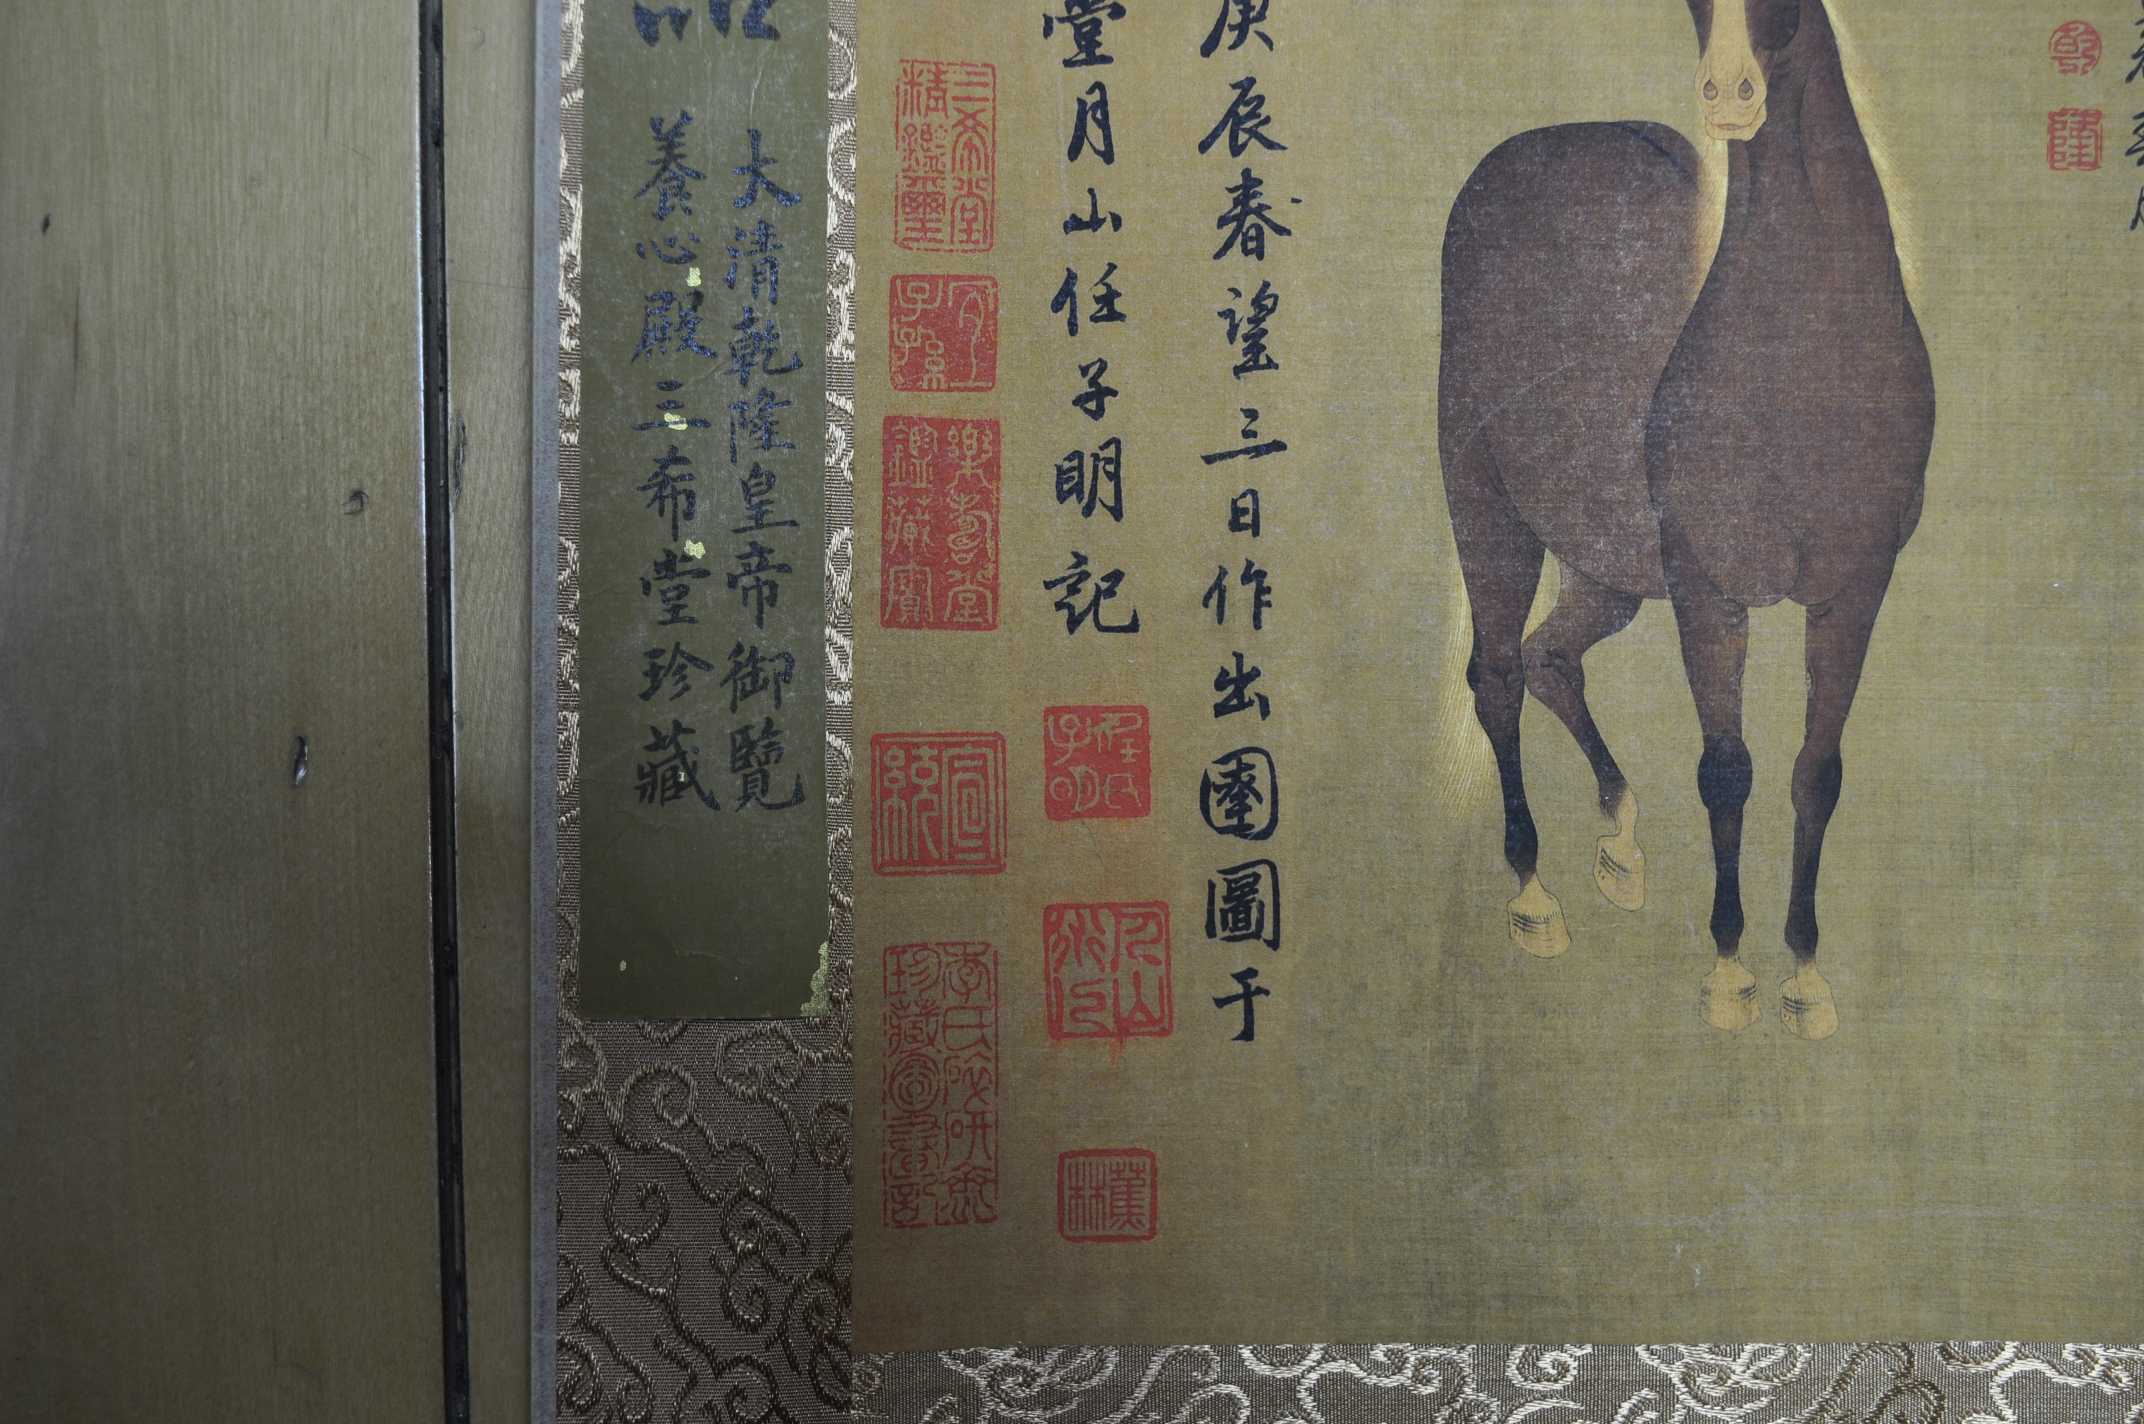 庚辰春望三日作出圉圖于
堂月山任子明記
任氏子明
月山
三希堂精鑑璽
宜子孫
樂壽堂鑑藏寶
宣統
蕉林
隆
大清乾隆皇帝御覽
養心殿三希堂珍藏